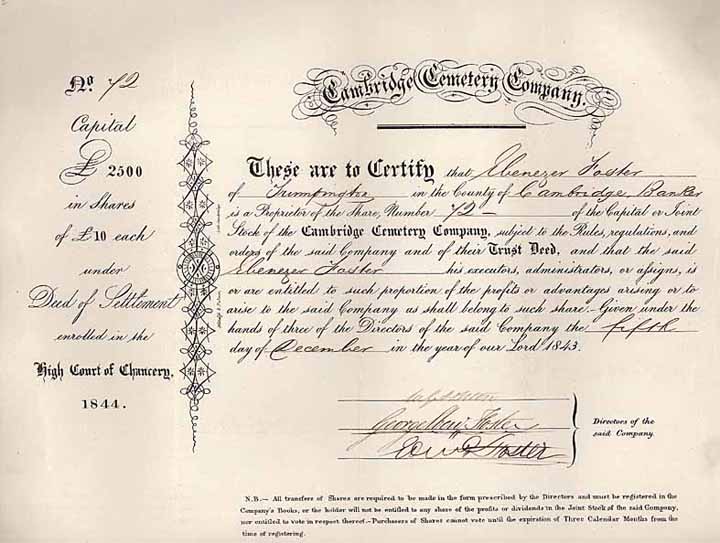 No. 72
Capital
£ 2500
in Shares
of £10 each
under
Deed of Settlement
enrolled in the
High Court of Chancery,
1844.
Cambridge Cemetery Company.
These are to Certify that Ebenezer Foster
of Trumpington in the County of Cambridge Banker
is a Proprietor of the Share, Number 72 — of the Capital or Joint
Stock of the Cambridge Cemetery Company, subject to the Rules, regulations, and
orders of the said Company and of their Trust Deed, and that the said
Ebenezer Foster his executors, administrators, or assigns, is
or are entitled to such proportion of the profits or advantages arising or to
arise to the said Company as shall belong to such share. Given under the
hands of three of the Directors of the said Company the fifth
day of December in the year of our Lord 1843.
George Foster
Foster
Directors of the
said Company.
N.B.— All transfers of Shares are required to be made in the form prescribed by the Directors and must be registered in the
Company's Books, or the holder will not be entitled to any share of the profits or dividends in the Joint Stock of the said Company,
nor entitled to vote in respect thereof.— Purchasers of Shares cannot vote until the expiration of Three Calendar Months from the
time of registering.